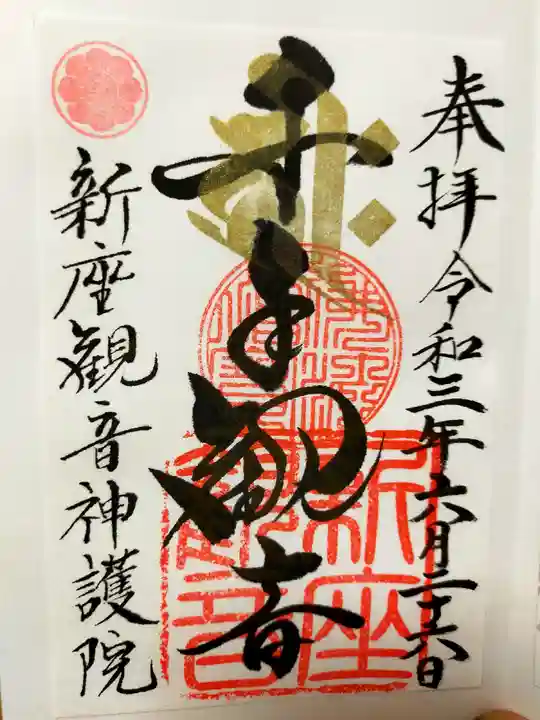 奉拝令和三年六月二十六日
千手観音
新座観音神護院
新座
観音